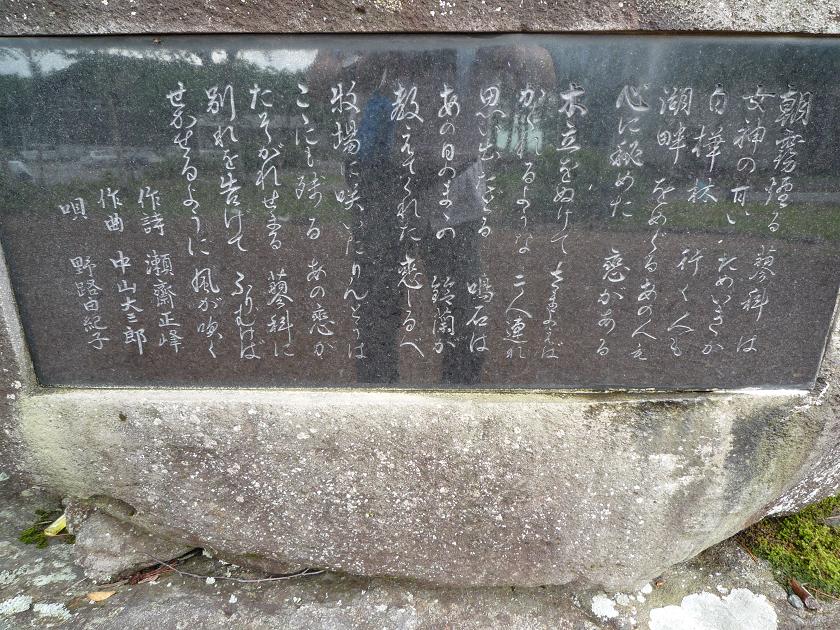 朝霧煙る 蓼科は
女神の甘い ためいきか
白樺林 行く人も
湖畔をめぐるあの人も
心に秘めた 恋がある
木立をぬけて さまよえば
かくれるような 二人連れ
思い出をたどる 鳴石は
あの日のまゝの 鈴蘭が
教えてくれた 恋しるべ
牧場に咲いたりんどうは
こゝにも残る あの恋が
たそがれせまる 蓼科に
別れを告げて ふりむけば
せかせるように 風が吹く
作詩 瀬齋正峰
作曲 中山大三郎
唄 野路由紀子